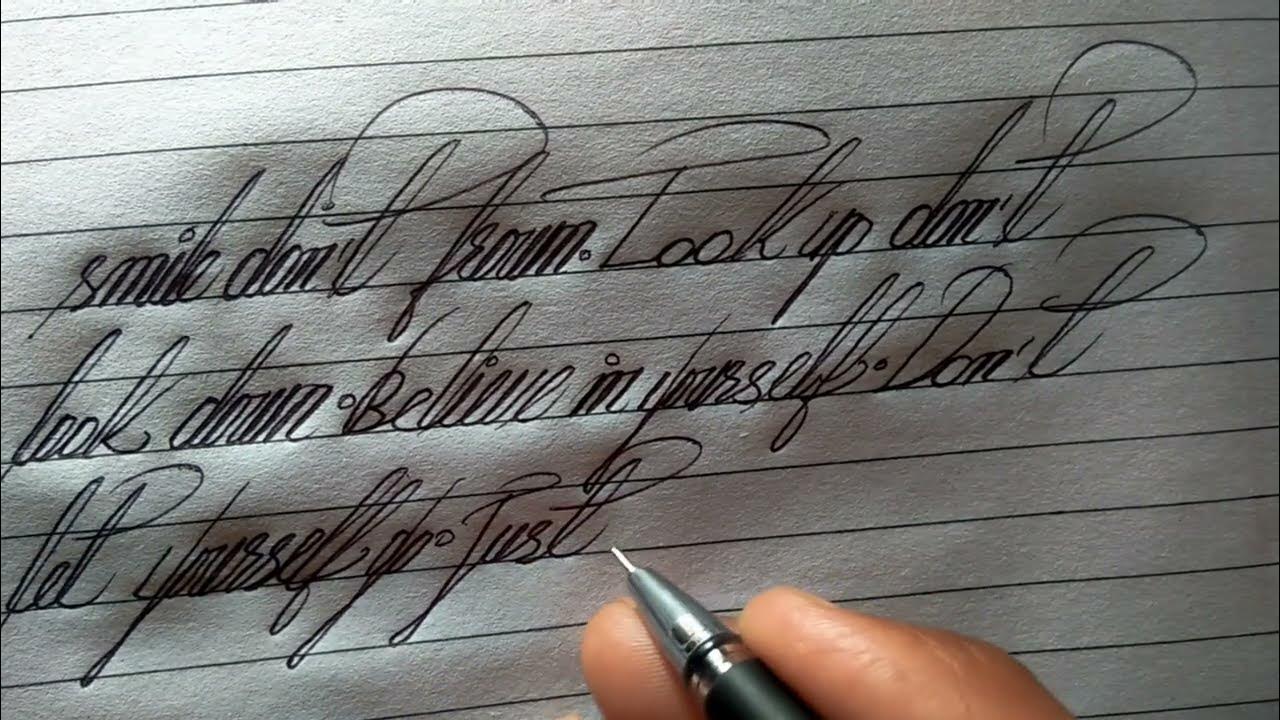 smile don't frown. Look up don't
look down. Believe in yourself. Don't
let yourself go. Just